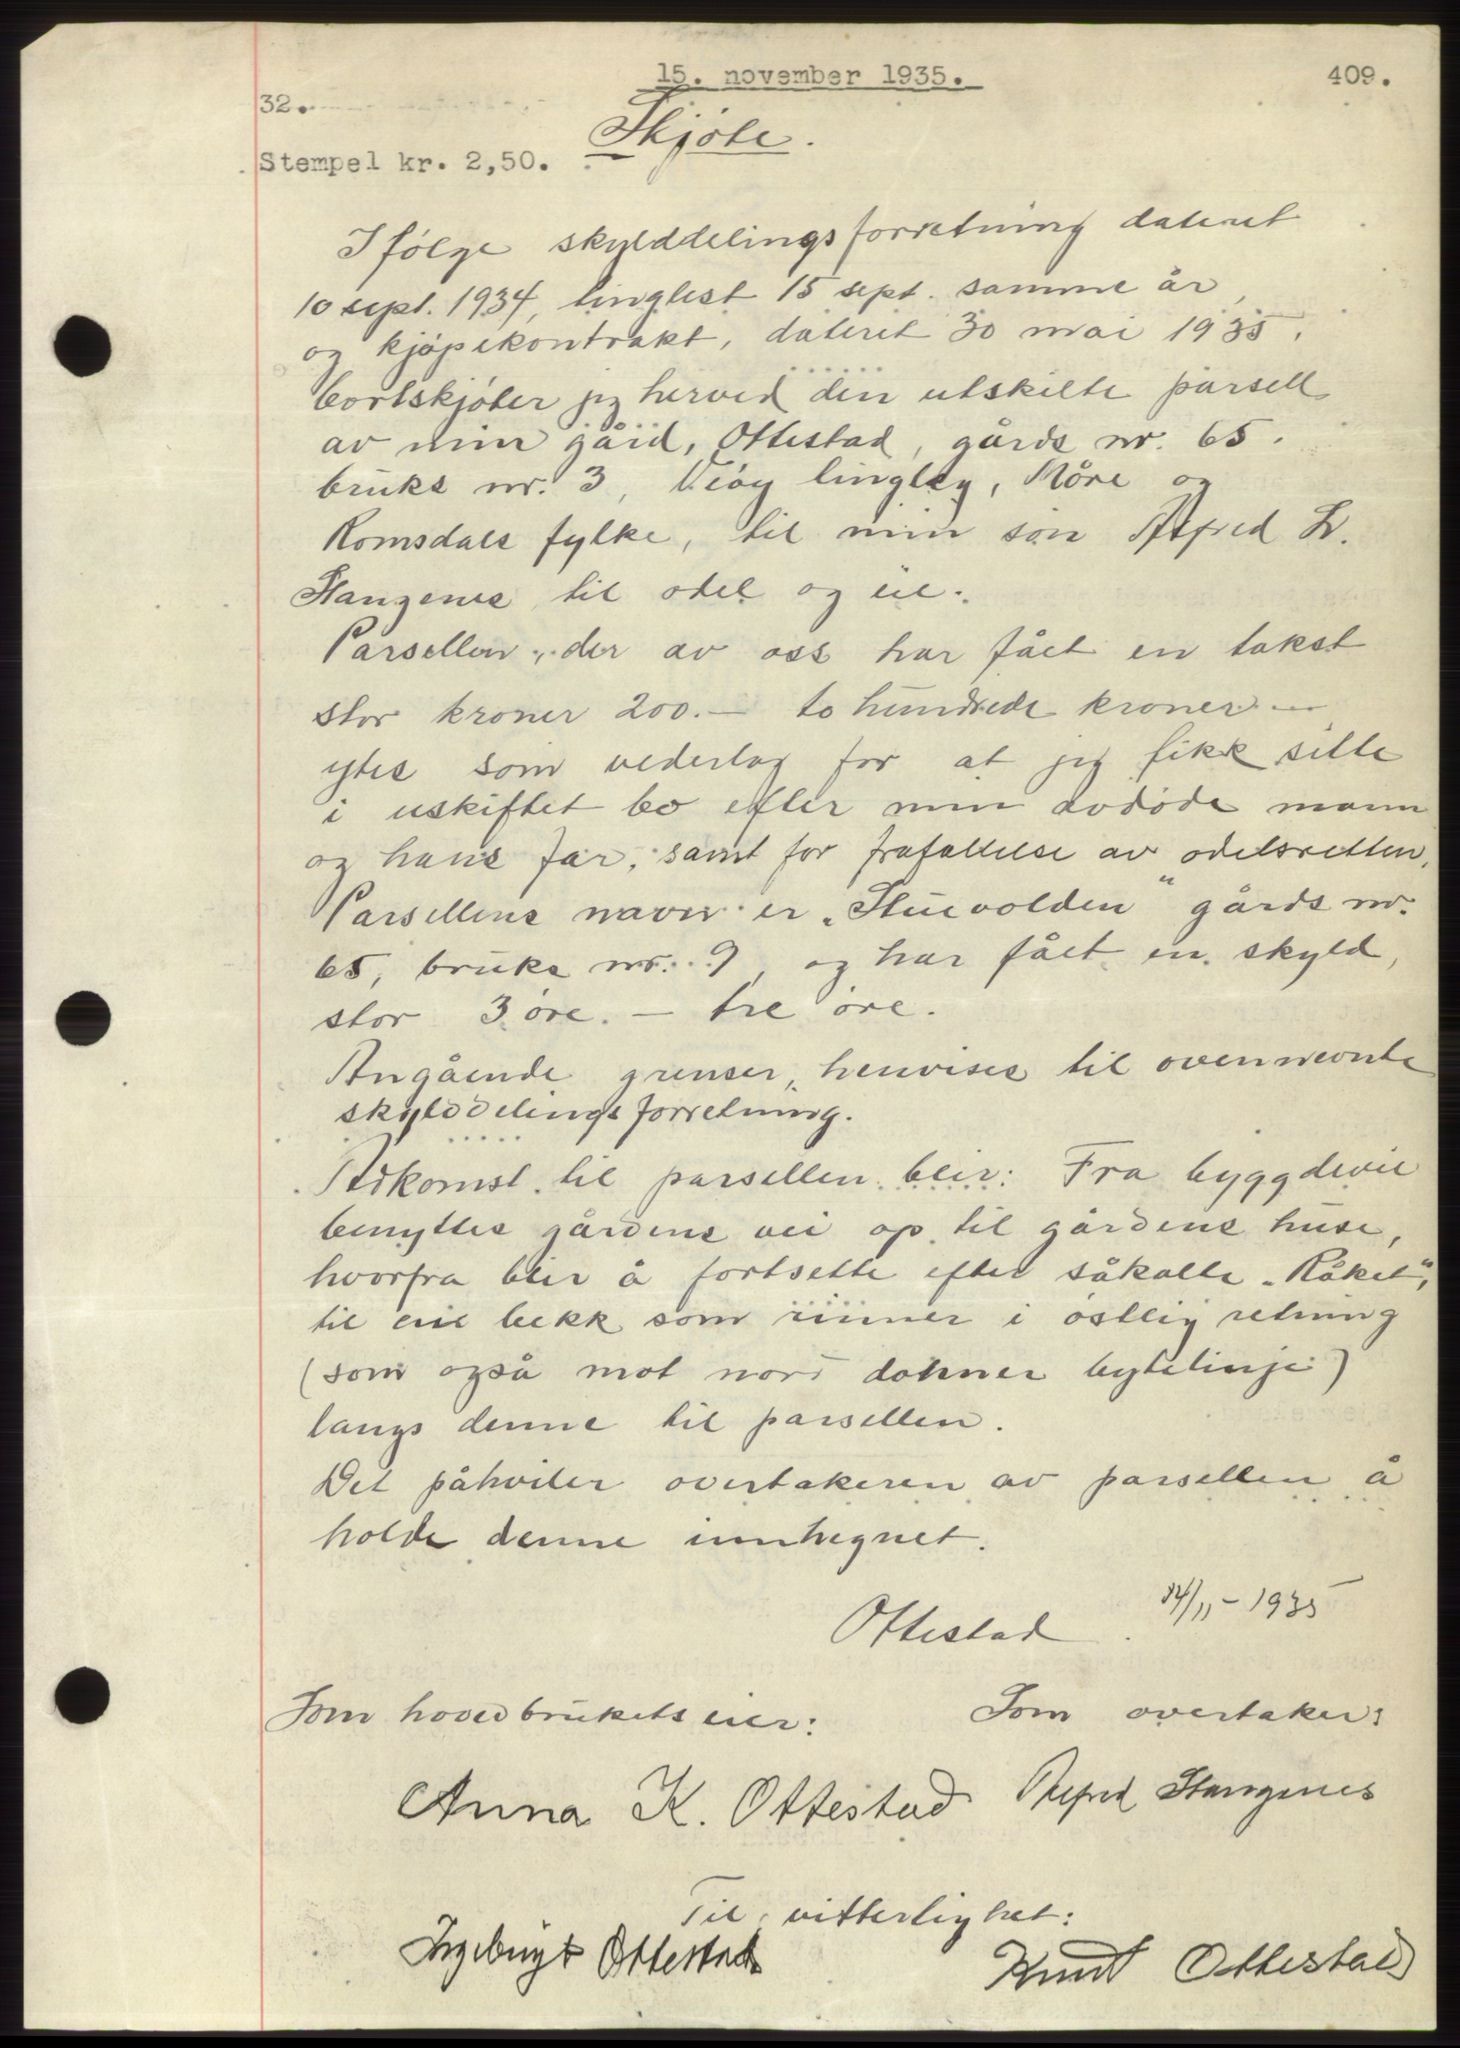 15. november 1935.
409.
32.
Skjøte.
Stempel kr. 2,50.
Ifølge skylddelingsforretning dateret
10 sept. 1934, tinglest 15 sept. samme år,
og kjøpekontrakt, dateret 30 mai 1935,
bortskjøter jeg herved den utskilte parsell
av min gård, Ottestad, gårds nr. 65.
bruks nr. 3, Veøy tinglag, Møre og
Romsdals fylke, til min søn Alfred L.
Stangenes til odel og eie.
Parsellen, der av oss har fået en takst
stor kroner 200.— to hundrede kroner —
ytes som vederlag for at jeg fikk sitte
i uskiftet bo efter min avdøde mann
og hans far, samt for frafallelse av odelsretten.
Parsellens navn er „Stuevolden" gårds nr.
65, bruks nr. 9, og har fået en skyld,
stor 3 øre. — tre øre.
Angående grenser, henvises til ovennevnte
skylddelingsforretning.
Adkomst til parsellen blir: Fra byggdevei
benyttes gårdens vei op til gårdens huse,
hvorfra blir å fortsette efter såkalte „Råket",
til en bekk som rinner i østlig retning
(som også mot nord danner bytelinje)
langs denne til parsellen.
Det påhviler overtakeren av parsellen å
holde denne innhegnet.
Ottestad 14/11 – 1935
Som hovedbrukets eier: Som overtaker:
Anna K. Ottestad Alfred Stangenes
Til vitterlighet:
Ingebrigt Ottestad Knut Ottestad